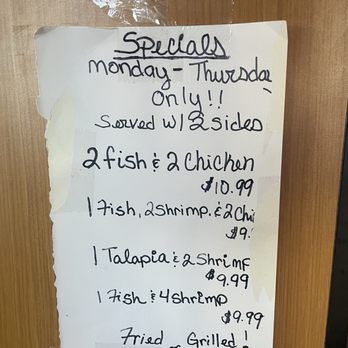 Specials
Monday - Thursda
only!!
Served W/ 2 sides
2 fish & 2 chicken
$10.99
1 Fish, 2 shrimp & 2 Chi
$9.
1 Talapia & 2 Shrimp
$9.99
1 Fish & 4 shrimp
$9.99
Fried Grilled!